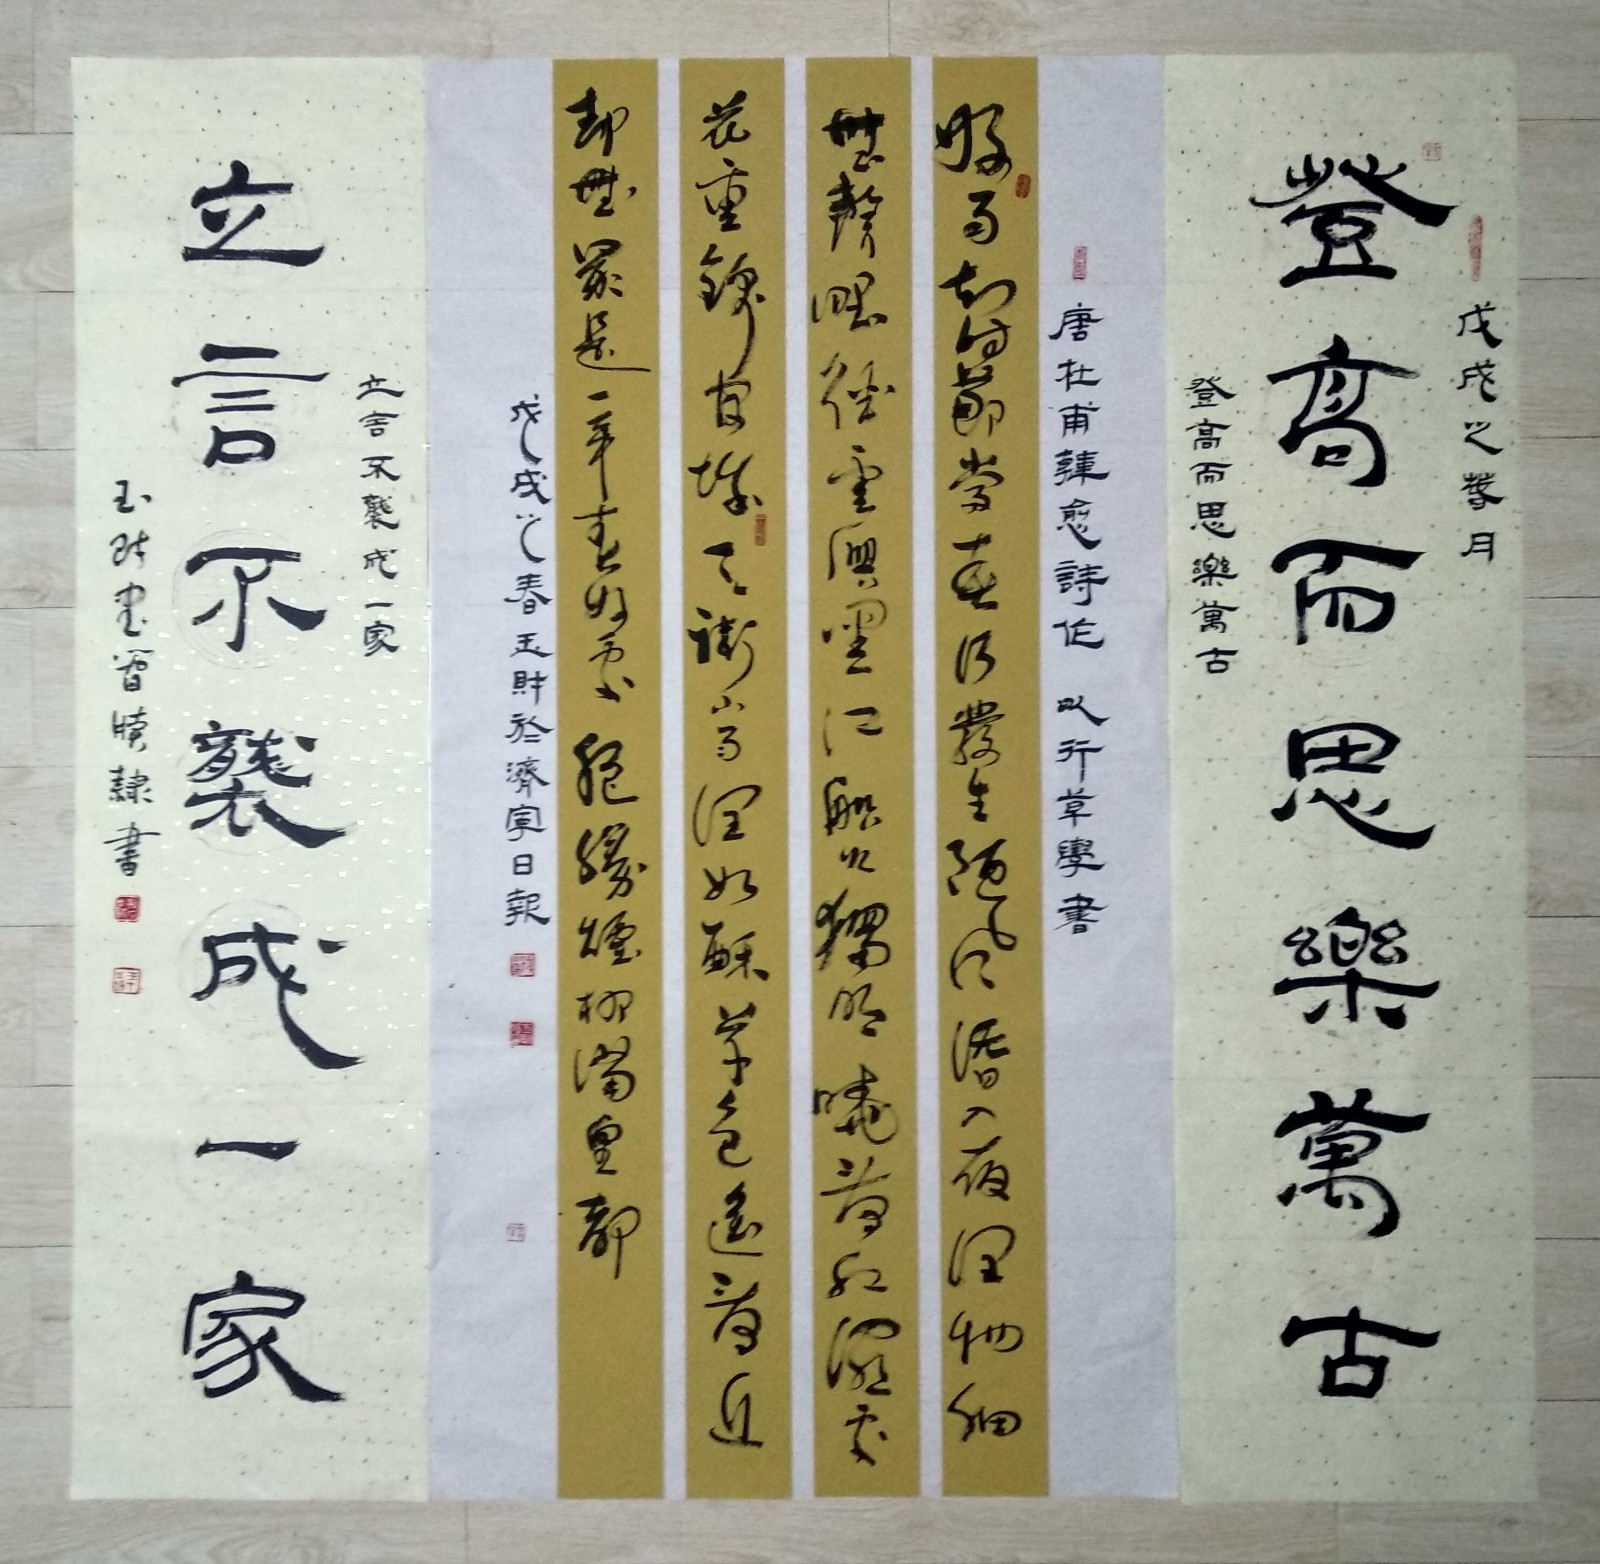 戊戌之 月
登高而思樂萬古
登高而思樂萬古
唐杜甫韓愈詩作 以行草學書
好雨知時節當春乃發生随風潛入夜潤物細
無聲野徑雲俱黑江船火獨明曉看紅濕處
花重錦官城天街小雨潤如酥草色遥看近
却無最是一年春好處絕勝煙柳滿皇都
戊戌之春玉財於濟寧日報
立言不襲成一家
立言不襲成一家
玉財書簡牘隸書